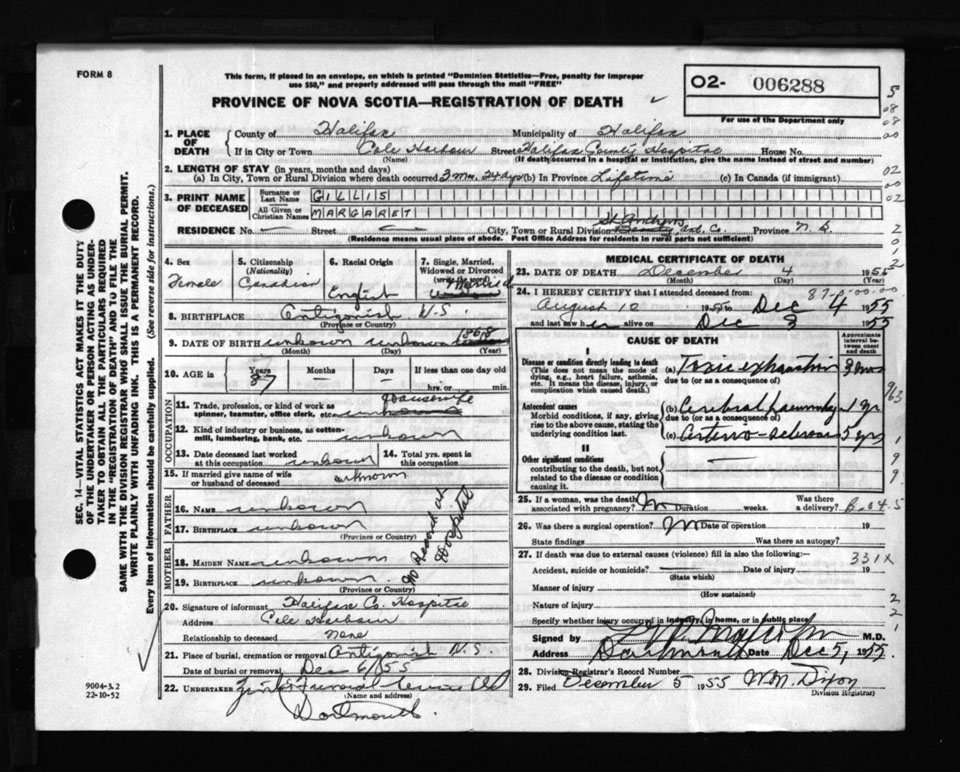 FORM 8
This form, if placed in an envelope, on which is printed "Dominion Statistics—Free, penalty for improper
use $50," and properly addressed will pass through the mail "FREE"
PROVINCE OF NOVA SCOTIA—REGISTRATION OF DEATH
02- 006288
For use of the Department only
1. PLACE OF DEATH County of Halifax Municipality of Halifax
If in City or Town Cole Harbour Street Halifax County Hospital House No.
(Name) (If death occurred in a hospital or institution, give the name instead of street and number)
2. LENGTH OF STAY (in years, months and days)
(a) In City, Town or Rural Division where death occurred 3 mos 24 dys (b) In Province Lifetime (c) In Canada (if immigrant)
3. PRINT NAME OF DECEASED Surname or Last Name GILLIS
All Given or Christian Names MARGARET
RESIDENCE No. — Street — City, Town or Rural Division St. Andrews Ant. Co. Province N.S.
(Residence means usual place of abode. Post Office Address for residents in rural parts not sufficient)
4. Sex Female
5. Citizenship (Nationality) Canadian
6. Racial Origin English
7. Single, Married, Widowed or Divorced (write the word) Married
8. BIRTHPLACE Antigonish N.S.
(Province or Country)
9. DATE OF BIRTH unknown unknown 1868
(Month) (Day) (Year)
10. AGE in Years 87 Months — Days — If less than one day
hrs. or min.
OCCUPATION
11. Trade, profession, or kind of work as spinner, teamster, office clerk, etc. Housewife
12. Kind of industry or business, as cotten-mill, lumbering, bank, etc. unknown
13. Date deceased last worked at this occupation unknown 14. Total yrs. spent in this occupation
15. If married give name of wife or husband of deceased unknown
FATHER
16. Name unknown
17. Birthplace unknown
(Province or Country)
MOTHER
18. Maiden Name unknown
19. Birthplace unknown
(Province or Country)
No Record at Hospital
20. Signature of informant Halifax Co. Hospital
Address Cole Harbour
Relationship to deceased None
21. Place of burial, cremation or removal Antigonish N.S.
Date of burial or removal Dec 6/55
22. UNDERTAKER Funeral Service Ltd
(Name and address)
Dartmouth.
MEDICAL CERTIFICATE OF DEATH
23. DATE OF DEATH December 4 1955
(Month) (Day) (Year)
24. I HEREBY CERTIFY that I attended deceased from:
August 10 1955 to Dec 4 1955
and last saw her alive on Dec 3 1955
CAUSE OF DEATH
Approximate interval between onset and death
I
Disease or condition directly leading to death
(This does not mean the mode of dying, e.g., heart failure, asthenia, etc. It means the disease, injury, or complication which caused death.)
(a) Toxic exhaustion 3 mos
due to (or as a consequence of)
Antecedent causes
Morbid conditions, if any, giving rise to the above cause, stating the underlying condition last.
(b) Cerebral haemorrhage 1 yr
due to (or as a consequence of)
(c) Arterio-sclerosis 5 yrs
II
Other significant conditions
contributing to the death, but not related to the disease or condition causing it.
—
25. If a woman, was the death associated with pregnancy? No Duration weeks. Was there a delivery?
26. Was there a surgical operation? No Date of operation 19
State findings Was there an autopsy?
27. If death was due to external causes (violence) fill in also the following:— 331X
Accident, suicide or homicide? — Date of injury 19
(State which)
Manner of injury
(How sustained)
Nature of injury
Specify whether injury in industry, in home, or in public place
Signed by M.D.
Address Dartmouth Date Dec 5, 1955.
28. Division Registrar's Record Number
29. Filed December 5 1955 W.M. Dixon
Division Registrar)
9004-3.2
22-10-52
SEC. 14—VITAL STATISTICS ACT MAKES IT THE DUTY
OF THE UNDERTAKER OR PERSON ACTING AS UNDER-
TAKER TO OBTAIN ALL THE PARTICULARS REQUIRED
IN THE "REGISTRATION OF DEATH" AND TO FILE THE
SAME WITH THE DIVISION REGISTRAR WHO SHALL ISSUE THE BURIAL PERMIT.
WRITE PLAINLY WITH UNFADING INK. THIS IS A PERMANENT RECORD.
Every item of information should be carefully supplied. (See reverse side for instructions.)